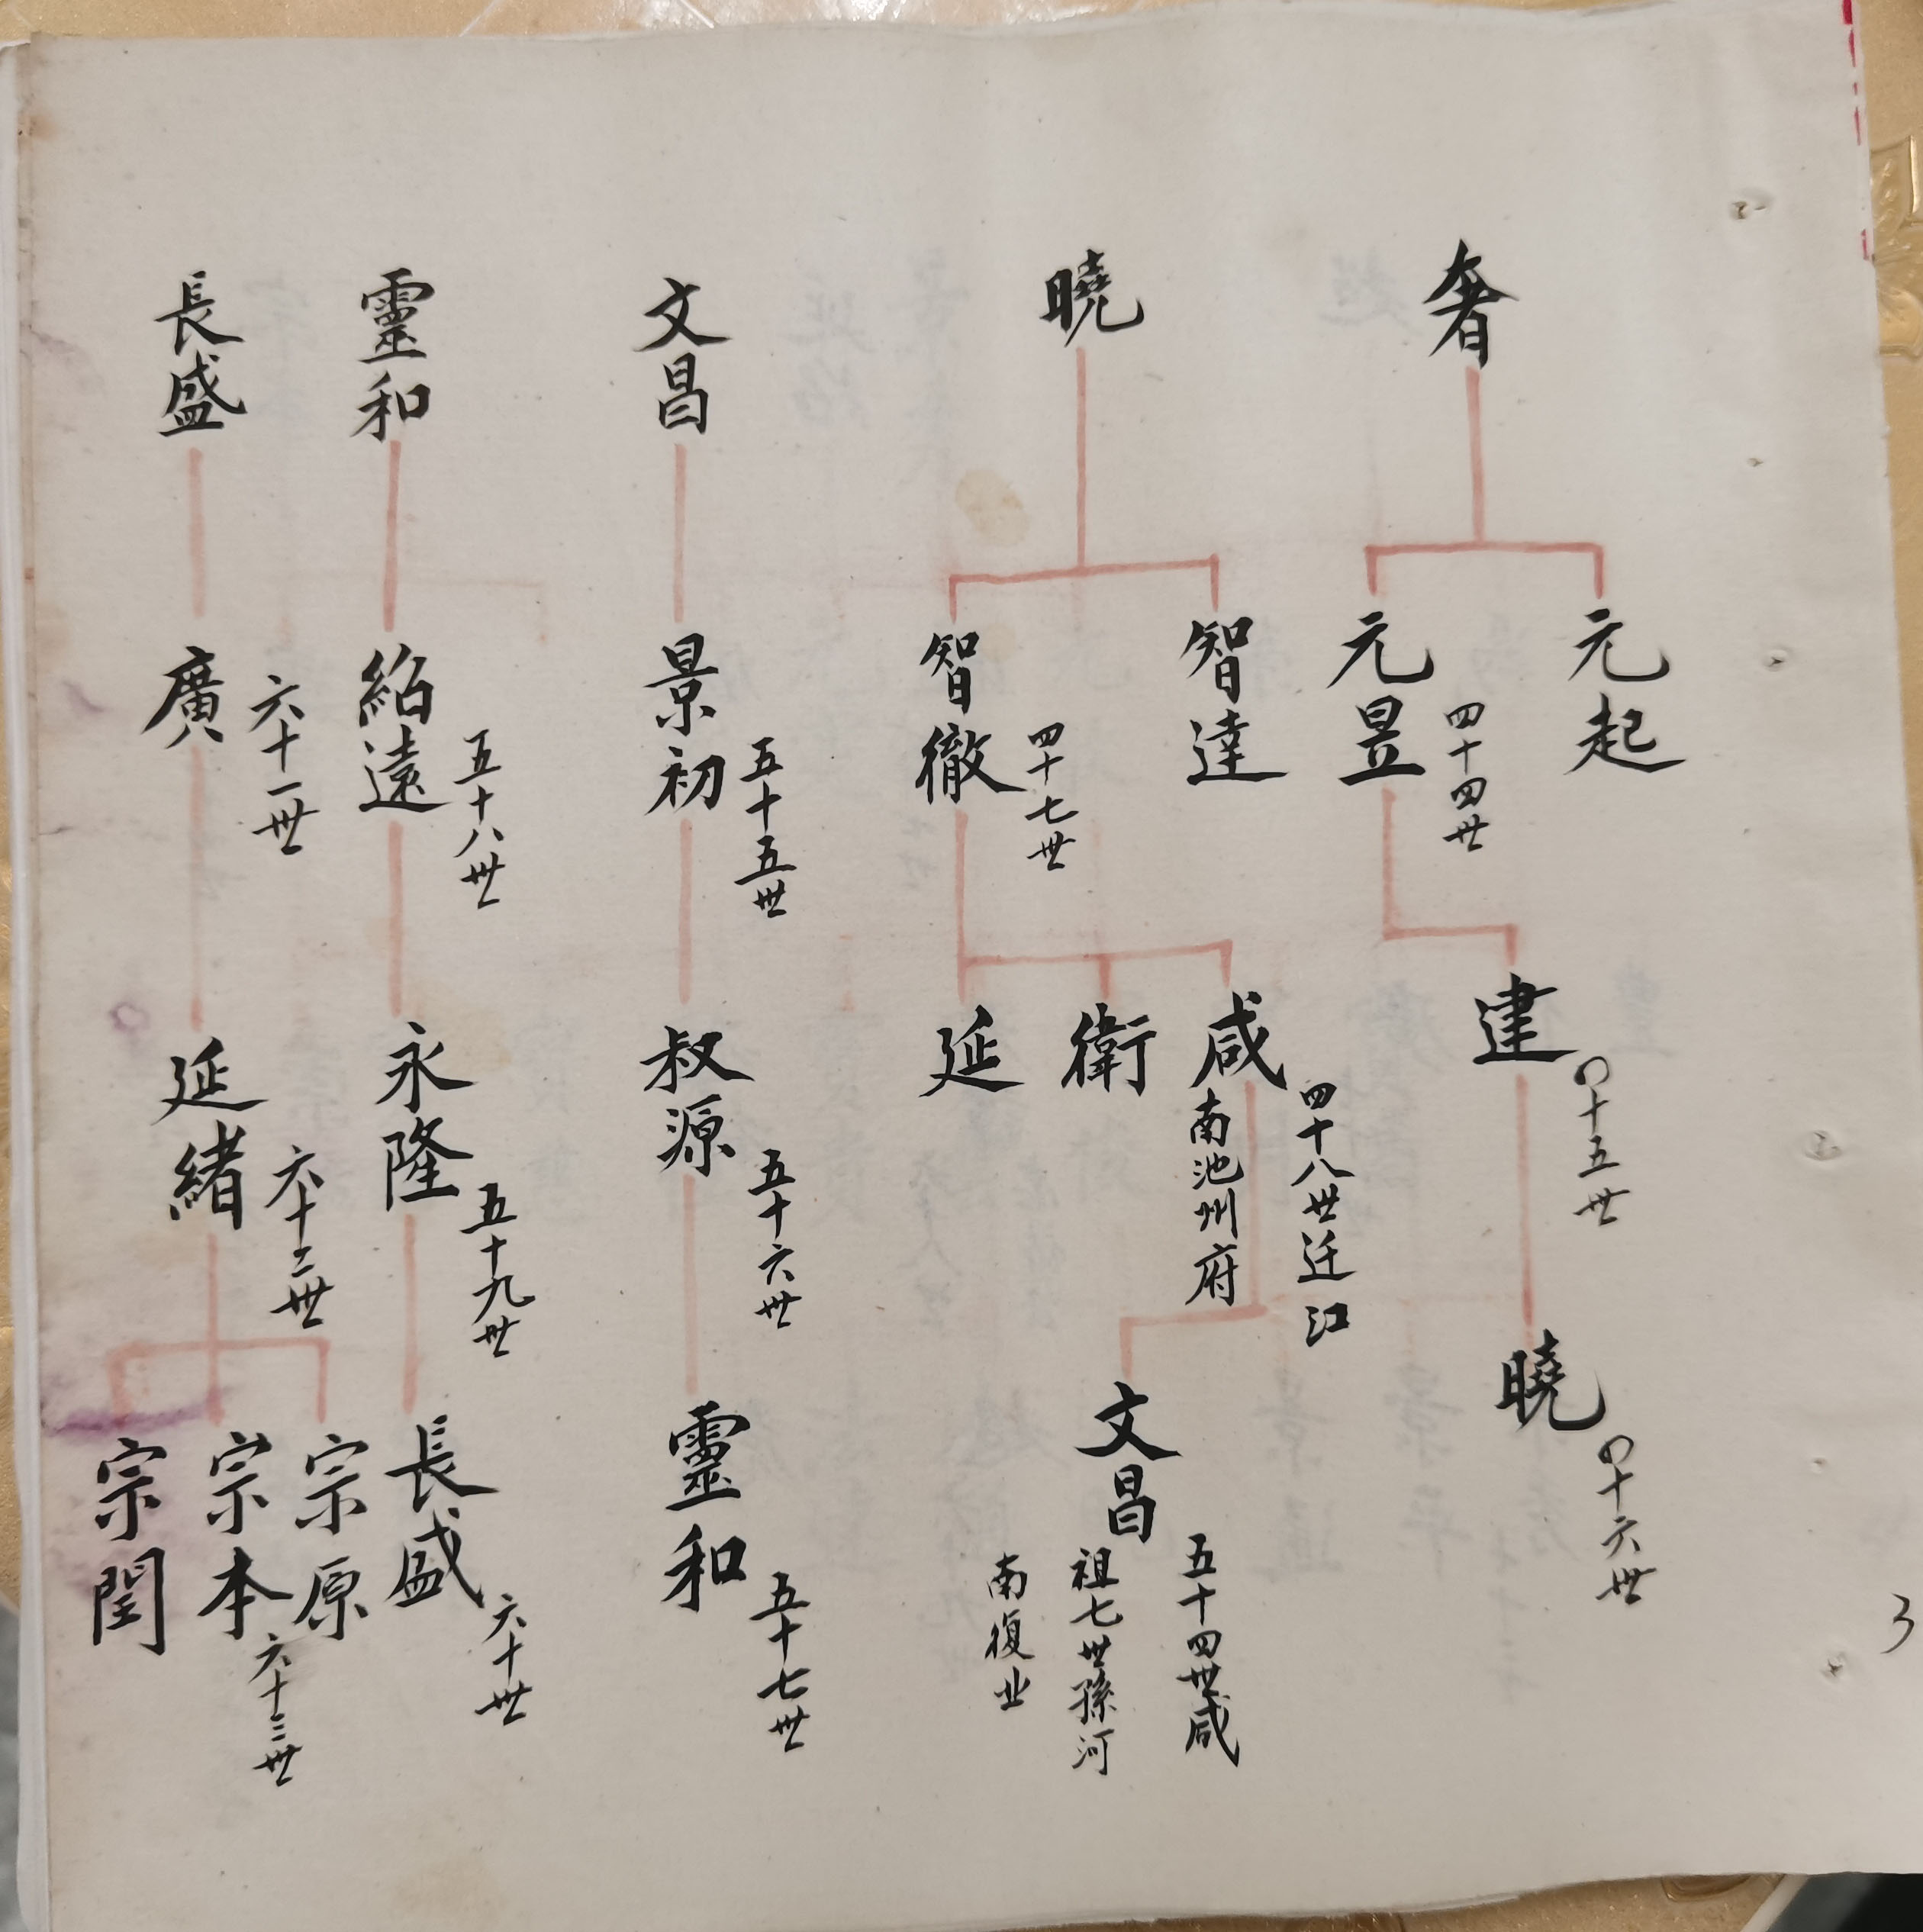 奢
元起
元昱
四十四世
建
四十五世
曉
四十六世
曉
智達
智徹
四十七世
咸
四十八世迁江
南池州府
衛
延
文昌
五十四世咸
祖七世孫河
南復业
文昌
景初
五十五世
叔源
五十六世
靈和
五十七世
靈和
紹遠
五十八世
永隆
五十九世
長盛
六十世
長盛
廣
六十一世
延緒
六十二世
宗原
宗本
六十三世
宗閏
3